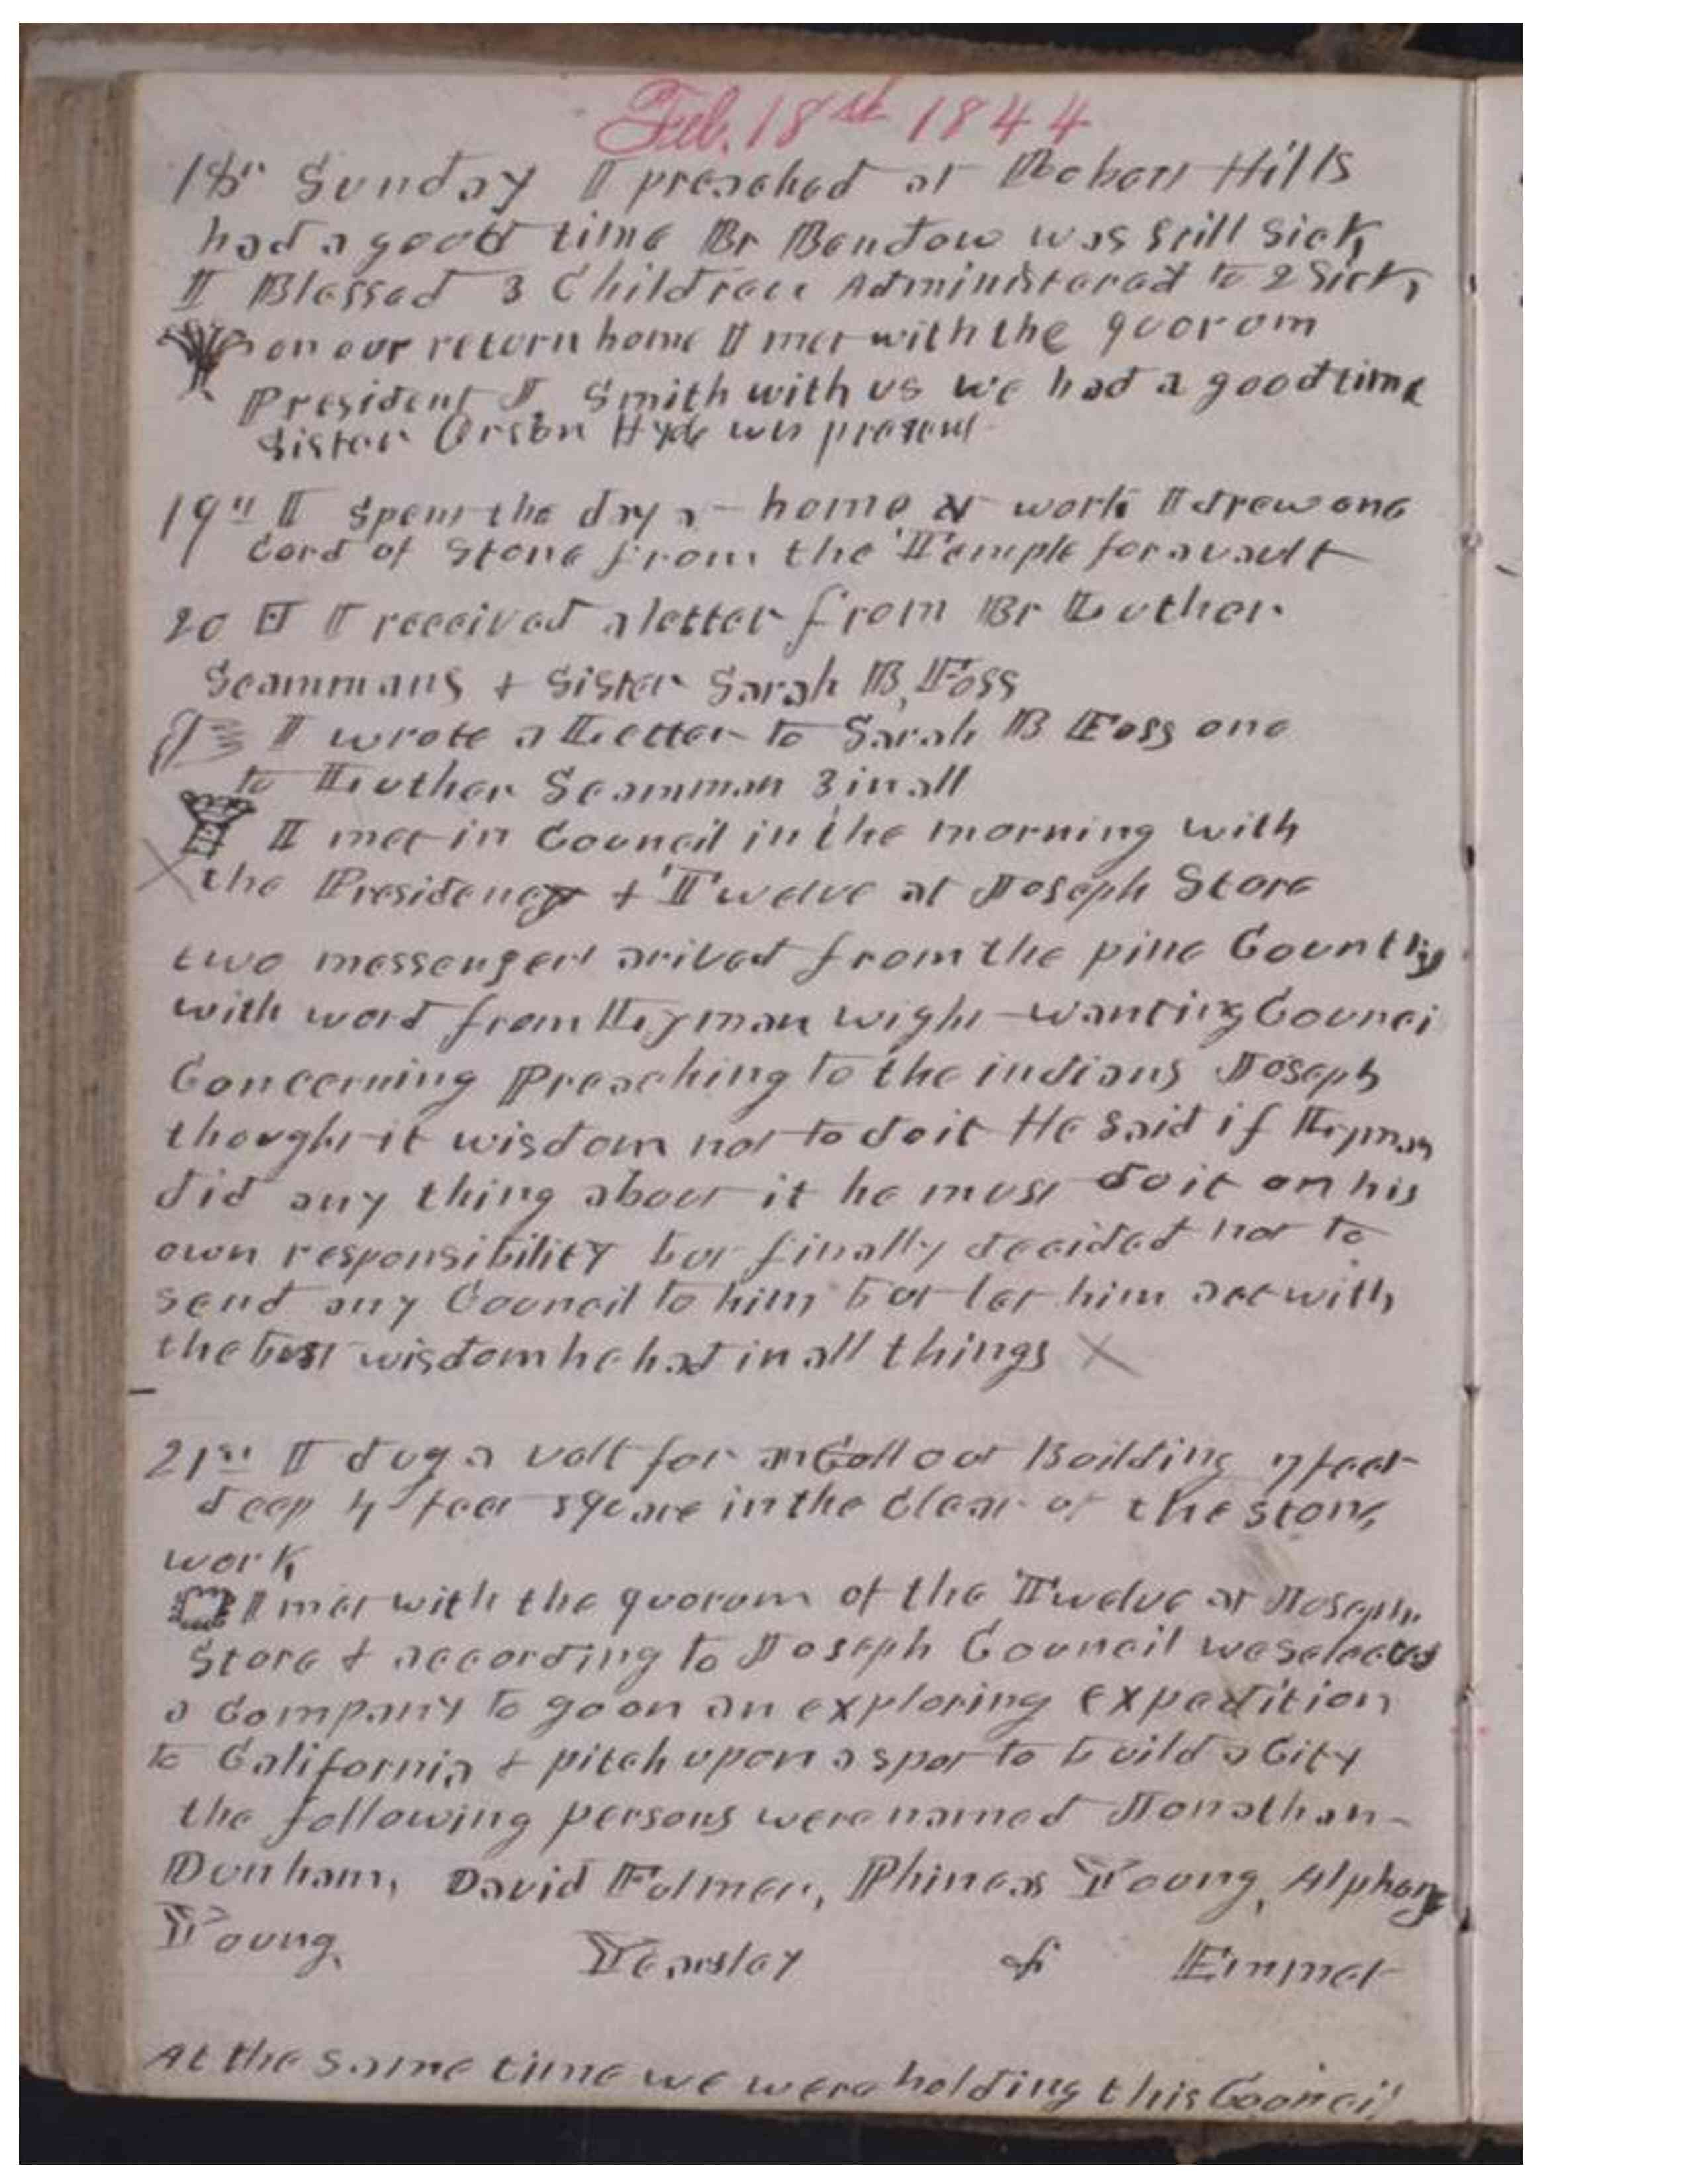 Feb. 18st 1844
18th Sunday I preached at Robert Hills
had a good time Br Bendow was still sick
I Blessed 3 Children Administered to 2 Sick,
on our return home I met with the quorom
President J Smith with us we had a good time
Sister Orson Hyde was present
19th I spent the day at home at work I drew one
Cord of Stone from the Temple for a vault
20 I received a letter from Br Luther
Scammans + Sister Sarah B, Foss
I wrote a Letter to Sarah B Foss one
to Luther Scamman 3 in all
I met in Council in the morning with
the Presidency + Twelve at Joseph Store
two messengers arived from the pine Country
with word from Lyman wight wanting Counci
Concerning Preaching to the indians Joseph
thought it wisdom not to do it He said if Lyman
did any thing about it he must do it on his
own responsibility but finally decided not to
send any Council to him but let him act with
the best wisdom he had in all things X
21st I dug a volt for an Coll out Building 7 feet
deep 4 feet square in the Clear of the stone,
work
I met with the quorum of the Twelve at Joseph
Store + according to Joseph Council we selected
a Company to go on an exploring expedition
to California + pitch upon a spot to build a City
the following persons were named Jonathan
Dunham, David Fulmer, Phineas Young, Alphonzo
Young, Yearsley & Emmet
At the same time we were holding this Council